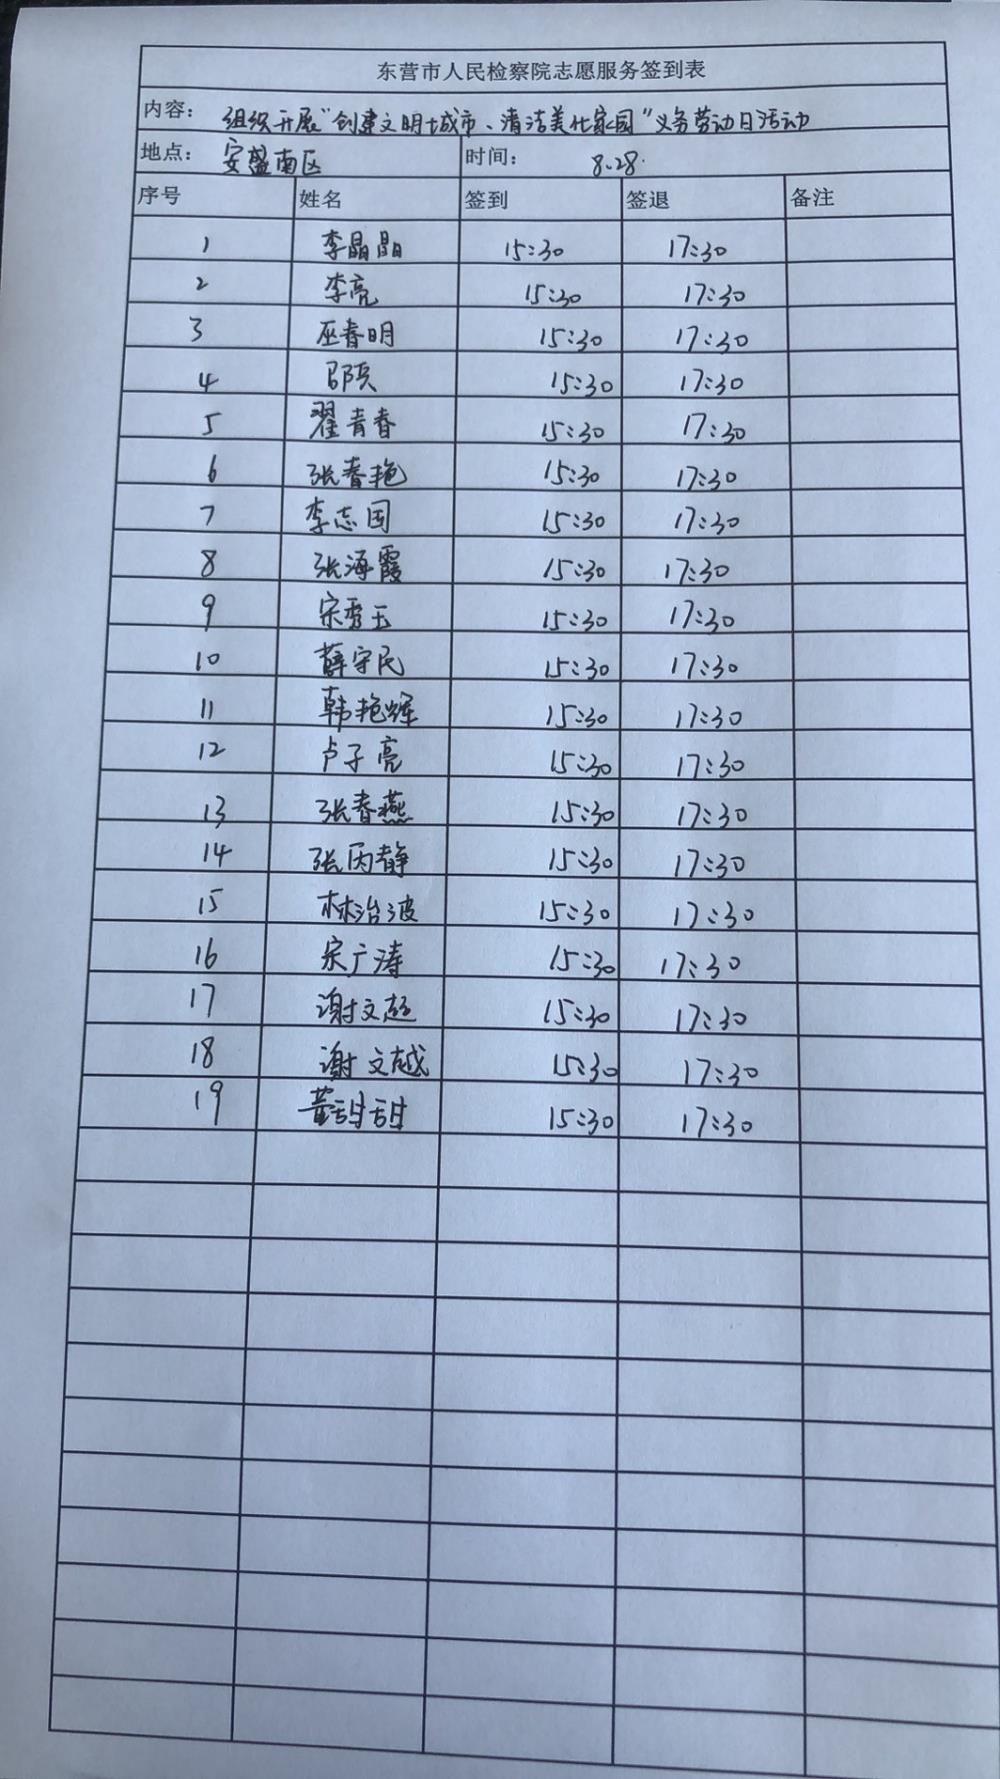 东营市人民检察院志愿服务签到表
内容： 组织开展“创建文明城市、清洁美化家园”义务劳动日活动
地点： 安盛南区 时间： 8.28.
序号 姓名 签到 签退 备注
1 李晶晶 15:30 17:30
2 李亮 15:30 17:30
3 巫春明 15:30 17:30
4 15:30 17:30
5 翟青春 15:30 17:30
6 张春艳 15:30 17:30
7 李志国 15:30 17:30
8 张海霞 15:30 17:30
9 宋秀玉 15:30 17:30
10 薛守民 15:30 17:30
11 韩艳辉 15:30 17:30
12 卢子亮 15:30 17:30
13 张春燕 15:30 17:30
14 张丙静 15:30 17:30
15 林治波 15:30 17:30
16 宋广涛 15:30 17:30
17 谢文超 15:30 17:30
18 谢文越 15:30 17:30
19 黄甜甜 15:30 17:30